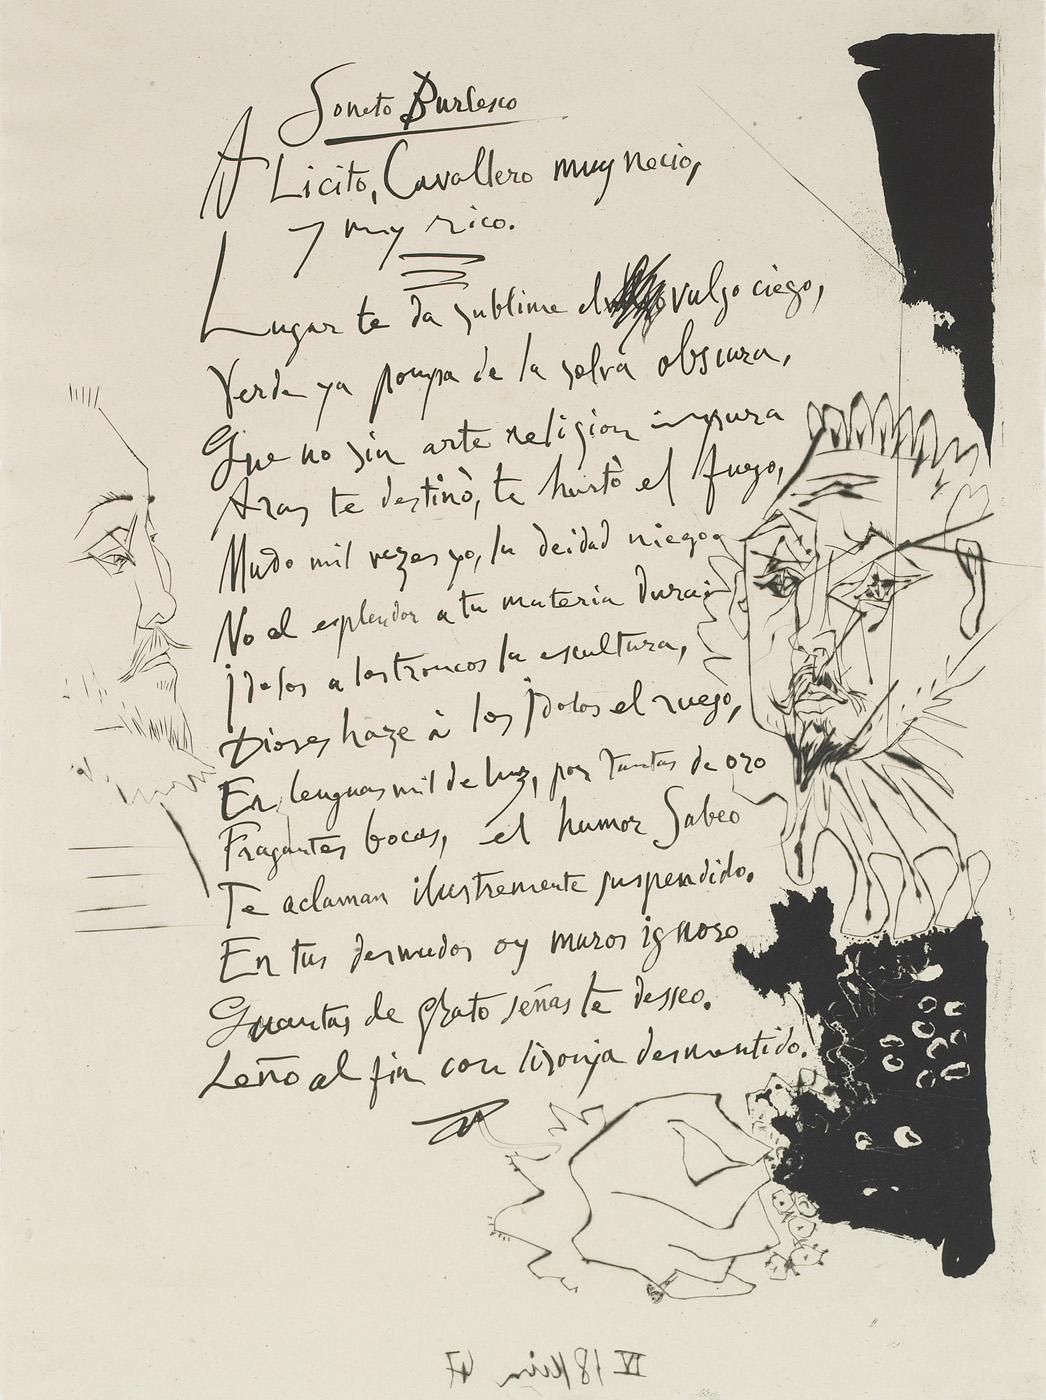 Soneto Burlesco
A Licito, Cavallero muy necio,
y muy rico.
Lugar te da sublime el vulgo ciego,
Verde ya pompa de la selva obscura,
Que no sin arte religion impura
Aras te destinò, te hurtò el fuego,
Mudo mil vezes yo, la deidad niego
No el esplendor a tu materia dura:
jdolos a los troncos la escultura,
Dioses haze à los jdolos el ruego,
En lenguas mil de luz, por tantas de oro
Fragantes bocas, el humor Sabeo
Te aclaman ilustremente suspendido.
En tus desnudos oy muros ignoro
Quantas de grato señas te desseo.
Leño al fin con lisonja desmentido.
IV 18 Juin 47